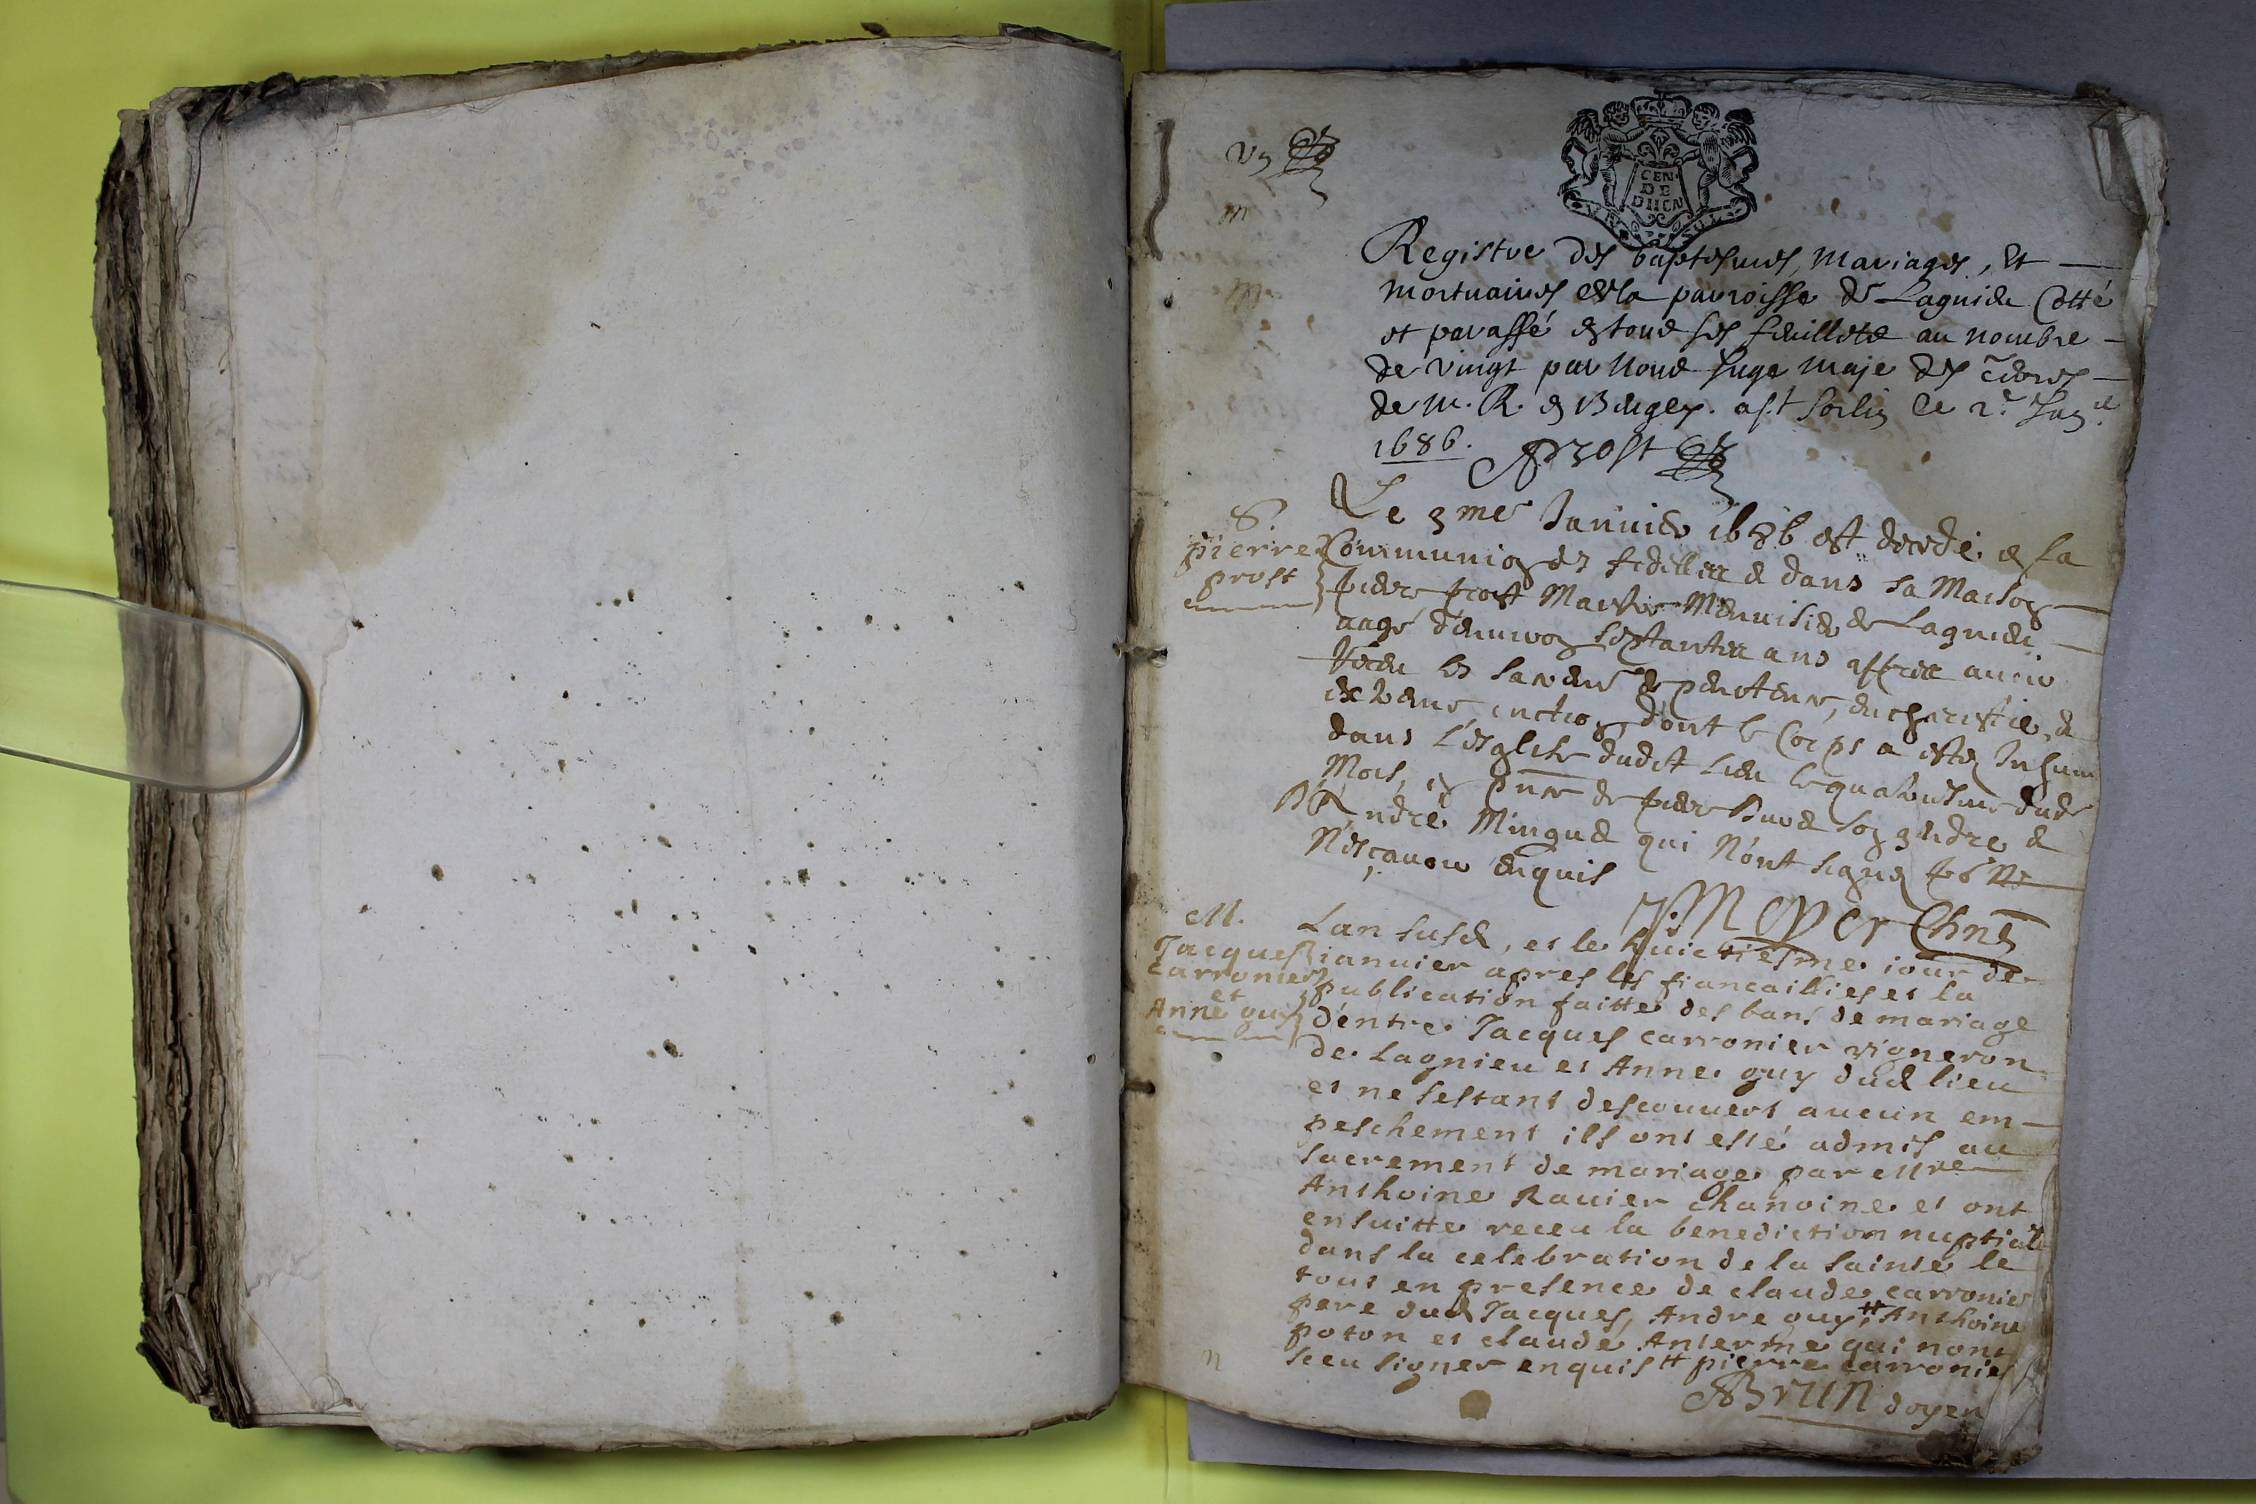 Vn
CEN
DE
DIION
Registre des baptesmes, mariages, et
mortuaires de la parroisse de Lagnieu Cotté
et paraffé en tous ses feuillets au nombre
de vingt par nous Juge maje des terres
de M. R. en Bugey. a st Sorlin ce 2e Jan
1686. Prost
S.
pierre
prost
Le 3me Janvier 1686 est decedé en la
Communion des fidelles et dans sa maison
pierre prost maistre Menuisier de Lagnieu
aagé d'environ septante ans apres avoir
receu les sacrems de penitence, eucharistie, et
extreme onction dont le corps a esté Inhumé
dans L'esglise dudit lieu le quatriesme dud
Mois, en pnce de pierre son gendre et
André Mingue qui n'ont signé pour
n'escavoir enquis
Meyer Chne
M.
Jacques
carronier
et
Anne guy
Lan susd, et le huictiesme iour de
ianuier apres les fiancailles et la
publication faitte des bans de mariage
d'entre Jacques carronier vigneron
de Lagnieu et Anne guy dud lieu
et ne sestant descouuert aucun em-
peschement ils ont esté admis au
sacrement de mariage par Mre
Anthoine Rauier chanoine et ont
ensuitte receu la benediction nuptiale
dans la celebration de la sainte le
tout en presence de claude carronier
pere dud Jacques, Andre guy, Anthoine
poton et claude Anterme qui nont
sceu signer enquis pierre carronier
Brun doyen